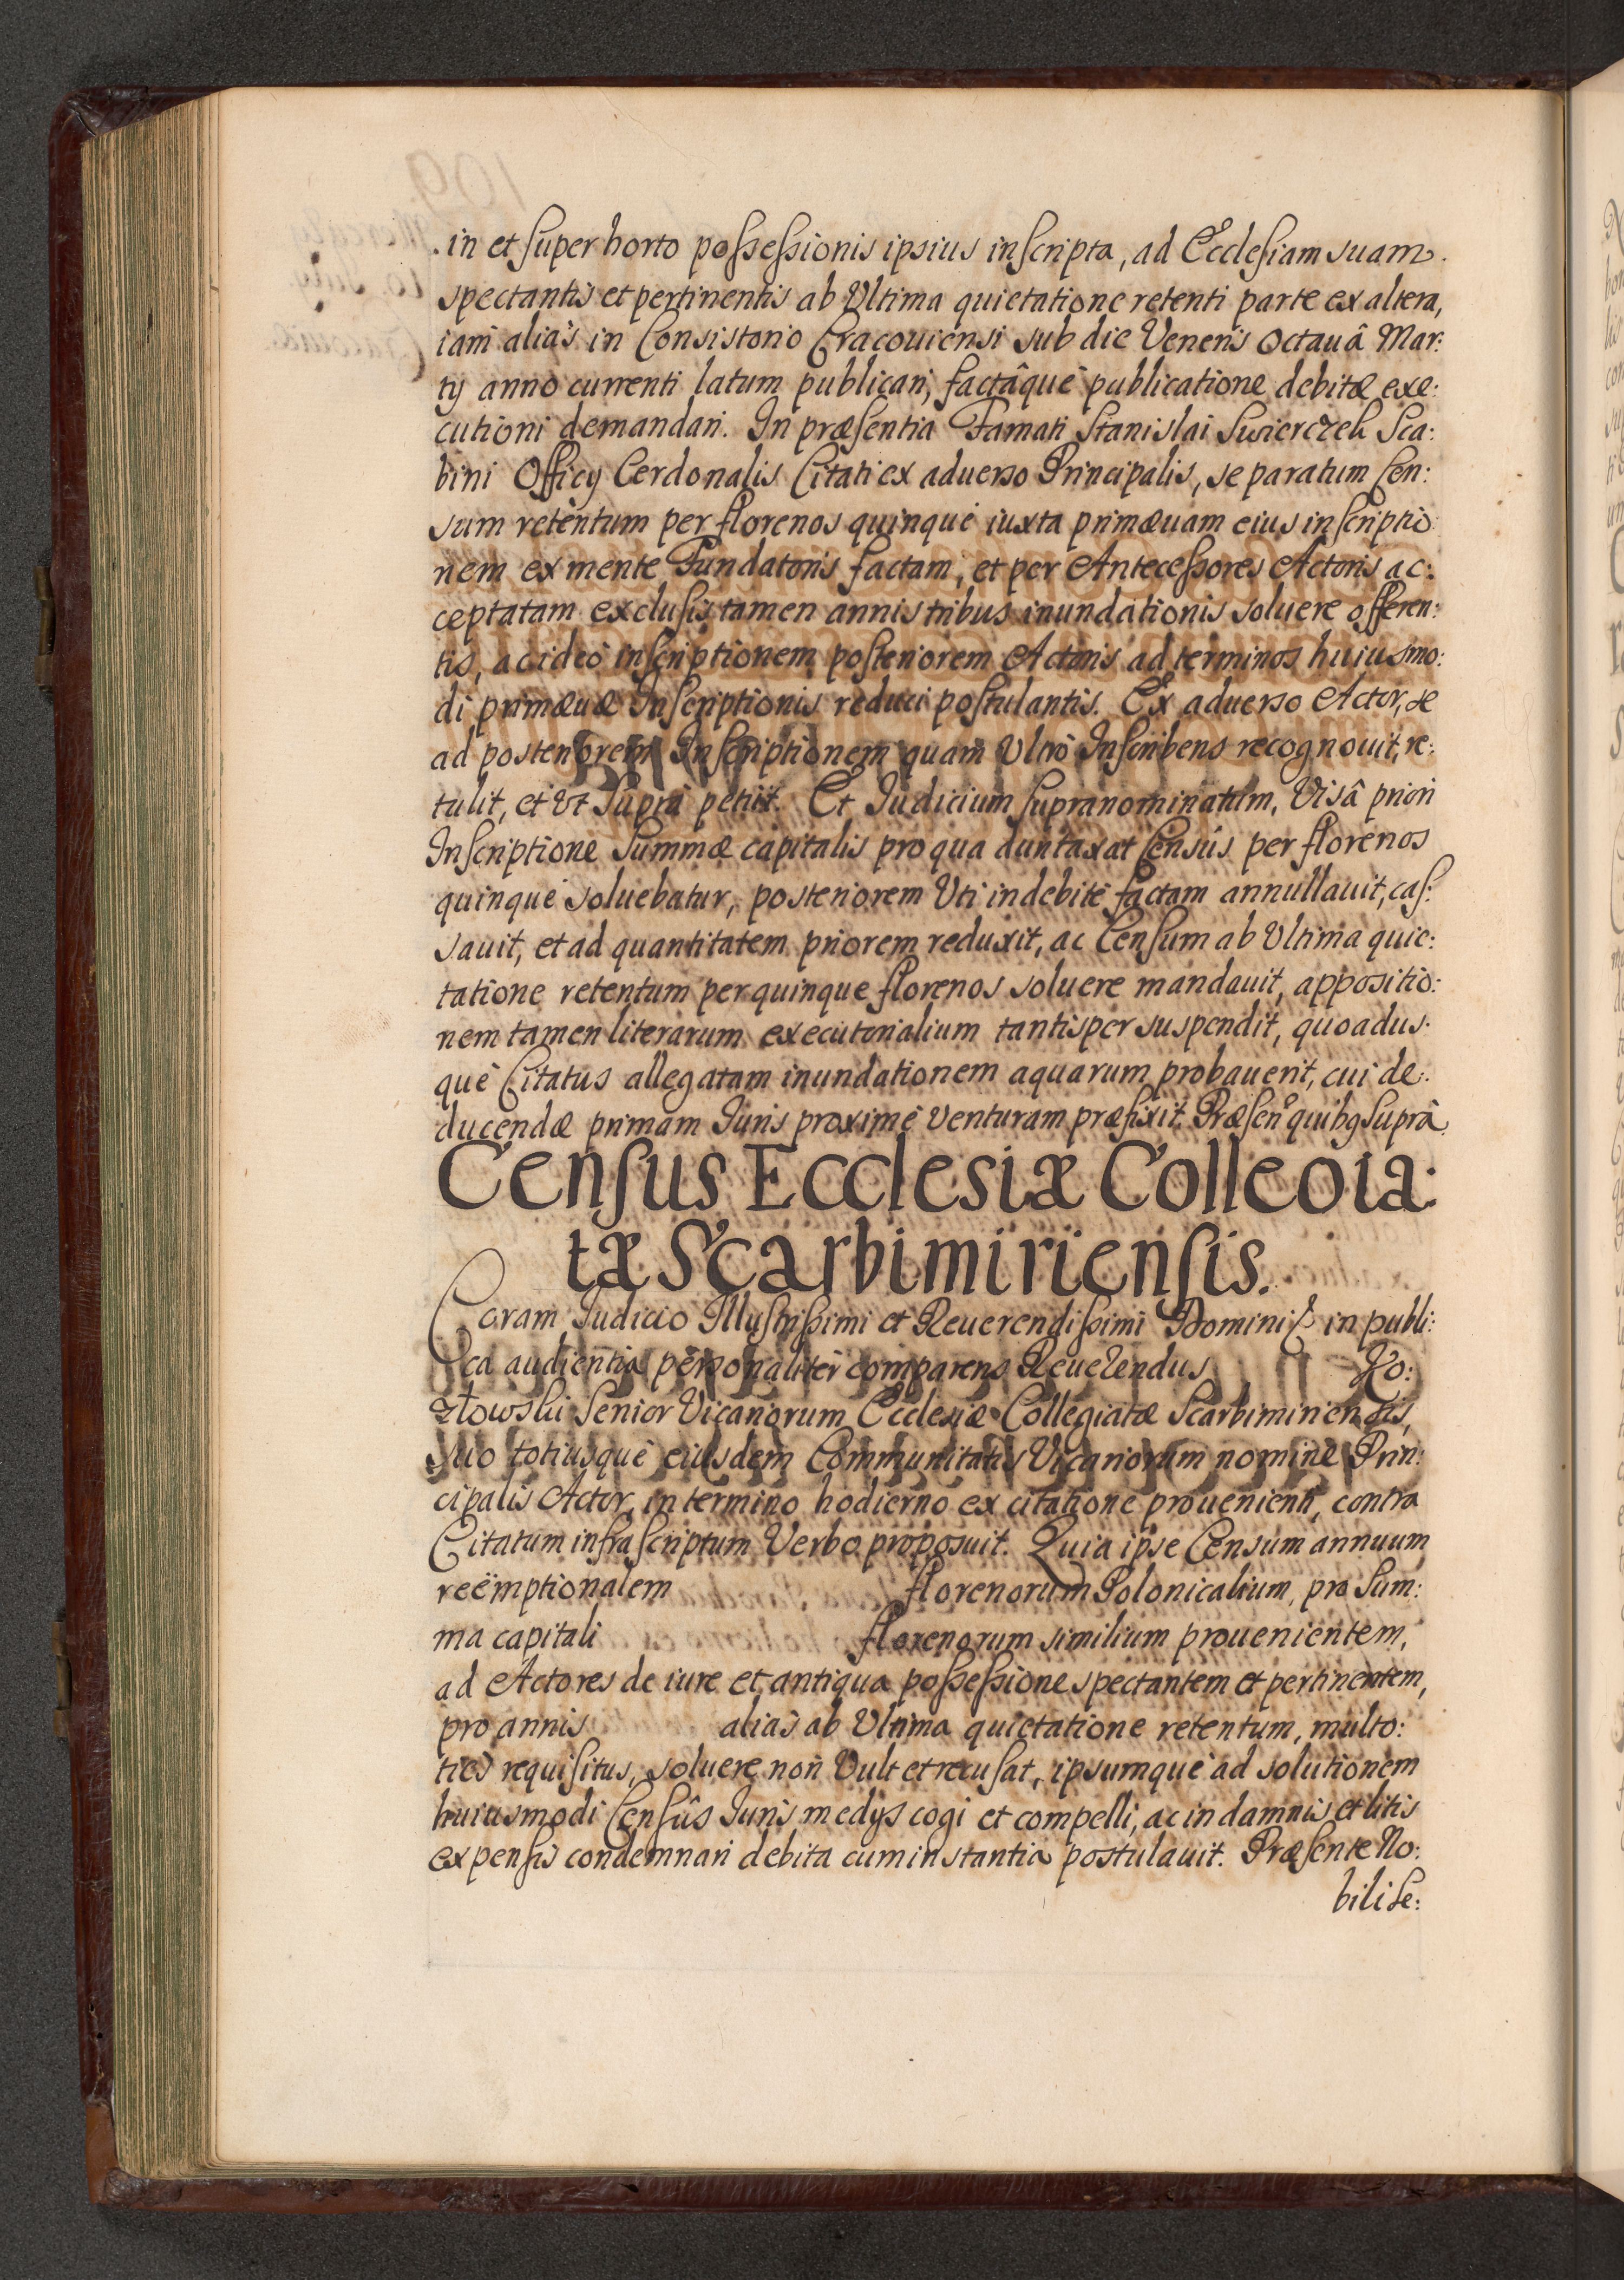 in et super horto possessionis ipsius inscripta, ad Ecclesiam suam
spectantis et pertinentis ab Ultima quietatione retenti parte ex altera,
iam aliàs in Consistorio Cracouiensi sub die Veneris Octauâ Mar:
tÿ anno currenti latum publicari, factâque publicatione debitæ exe:
cutioni demandari. In præsentia Famati Stanislai Swierczek Sca:
bini Officÿ Cerdonalis Citati ex aduerso Principalis, se paratum Cen:
sum retentum per florenos quinque iuxta primæuam eius inscriptio
nem ex mente Fundatoris factam, et per Antecessores Actoris ac:
ceptatam exclusis tamen annis tribus inundationis soluere offeren:
tis, ac ideò inscriptionem posteriorem Actoris ad terminos huiusmo:
di primæuæ Inscriptionis reduci postulantis. Ex aduerso Actor, se
ad posteriorem Inscriptionem quam Ultrò Inscribens recognouit, re:
tulit, et Vt Suprà petiit. Et Iudicium supranominatum, Visâ priori
Inscriptione Summæ capitalis pro qua duntaxat Census per florenos
quinque soluebatur, posteriorem Uti indebitè factam annullauit, cas:
sauit, et ad quantitatem priorem reduxit, ac Censum ab Ultima quie:
tatione retentum per quinque florenos soluere mandauit, appositio:
nem tamen literarum executorialium tantisper suspendit, quoadus:
que Citatus allegatam inundationem aquarum probauerit, cui de:
ducendæ primam Iuris proximè Venturam præfixit. Præsen quibg suprâ
Census Ecclesiæ Collegia:
tæ Scarbimiriensis.
Coram Iudicio Illustrissimi et Reuerendissimi Domini in publi:
ca audientia personaliter comparens Reuerendus Ko:
złowski Senior Vicariorum Ecclesiæ Collegiatæ Scarbimiriensis,
suo totiusque eiusdem Communitatis Vicariorum nomine Prin:
cipalis Actor, in termino hodierno ex citatione prouenienti, contra
Citatum infrascriptum Verbo proposuit. Quia ipse Censum annuum
reëmptionalem florenorum Polonicalium, pro Sum:
ma capitali florenorum similium prouenientem,
ad Actores de iure et antiqua possessione spectantem et pertinentem,
pro annis aliàs ab Ultima quietatione retentum, multo:
ties requisitus, soluere non Vult et recusat, ipsumque ad solutionem
huiusmodi Censûs Iuris medÿs cogi et compelli, ac in damnis et litis
expensis condemnari debita cum instantia postulauit. Præsente No:
bili Se: